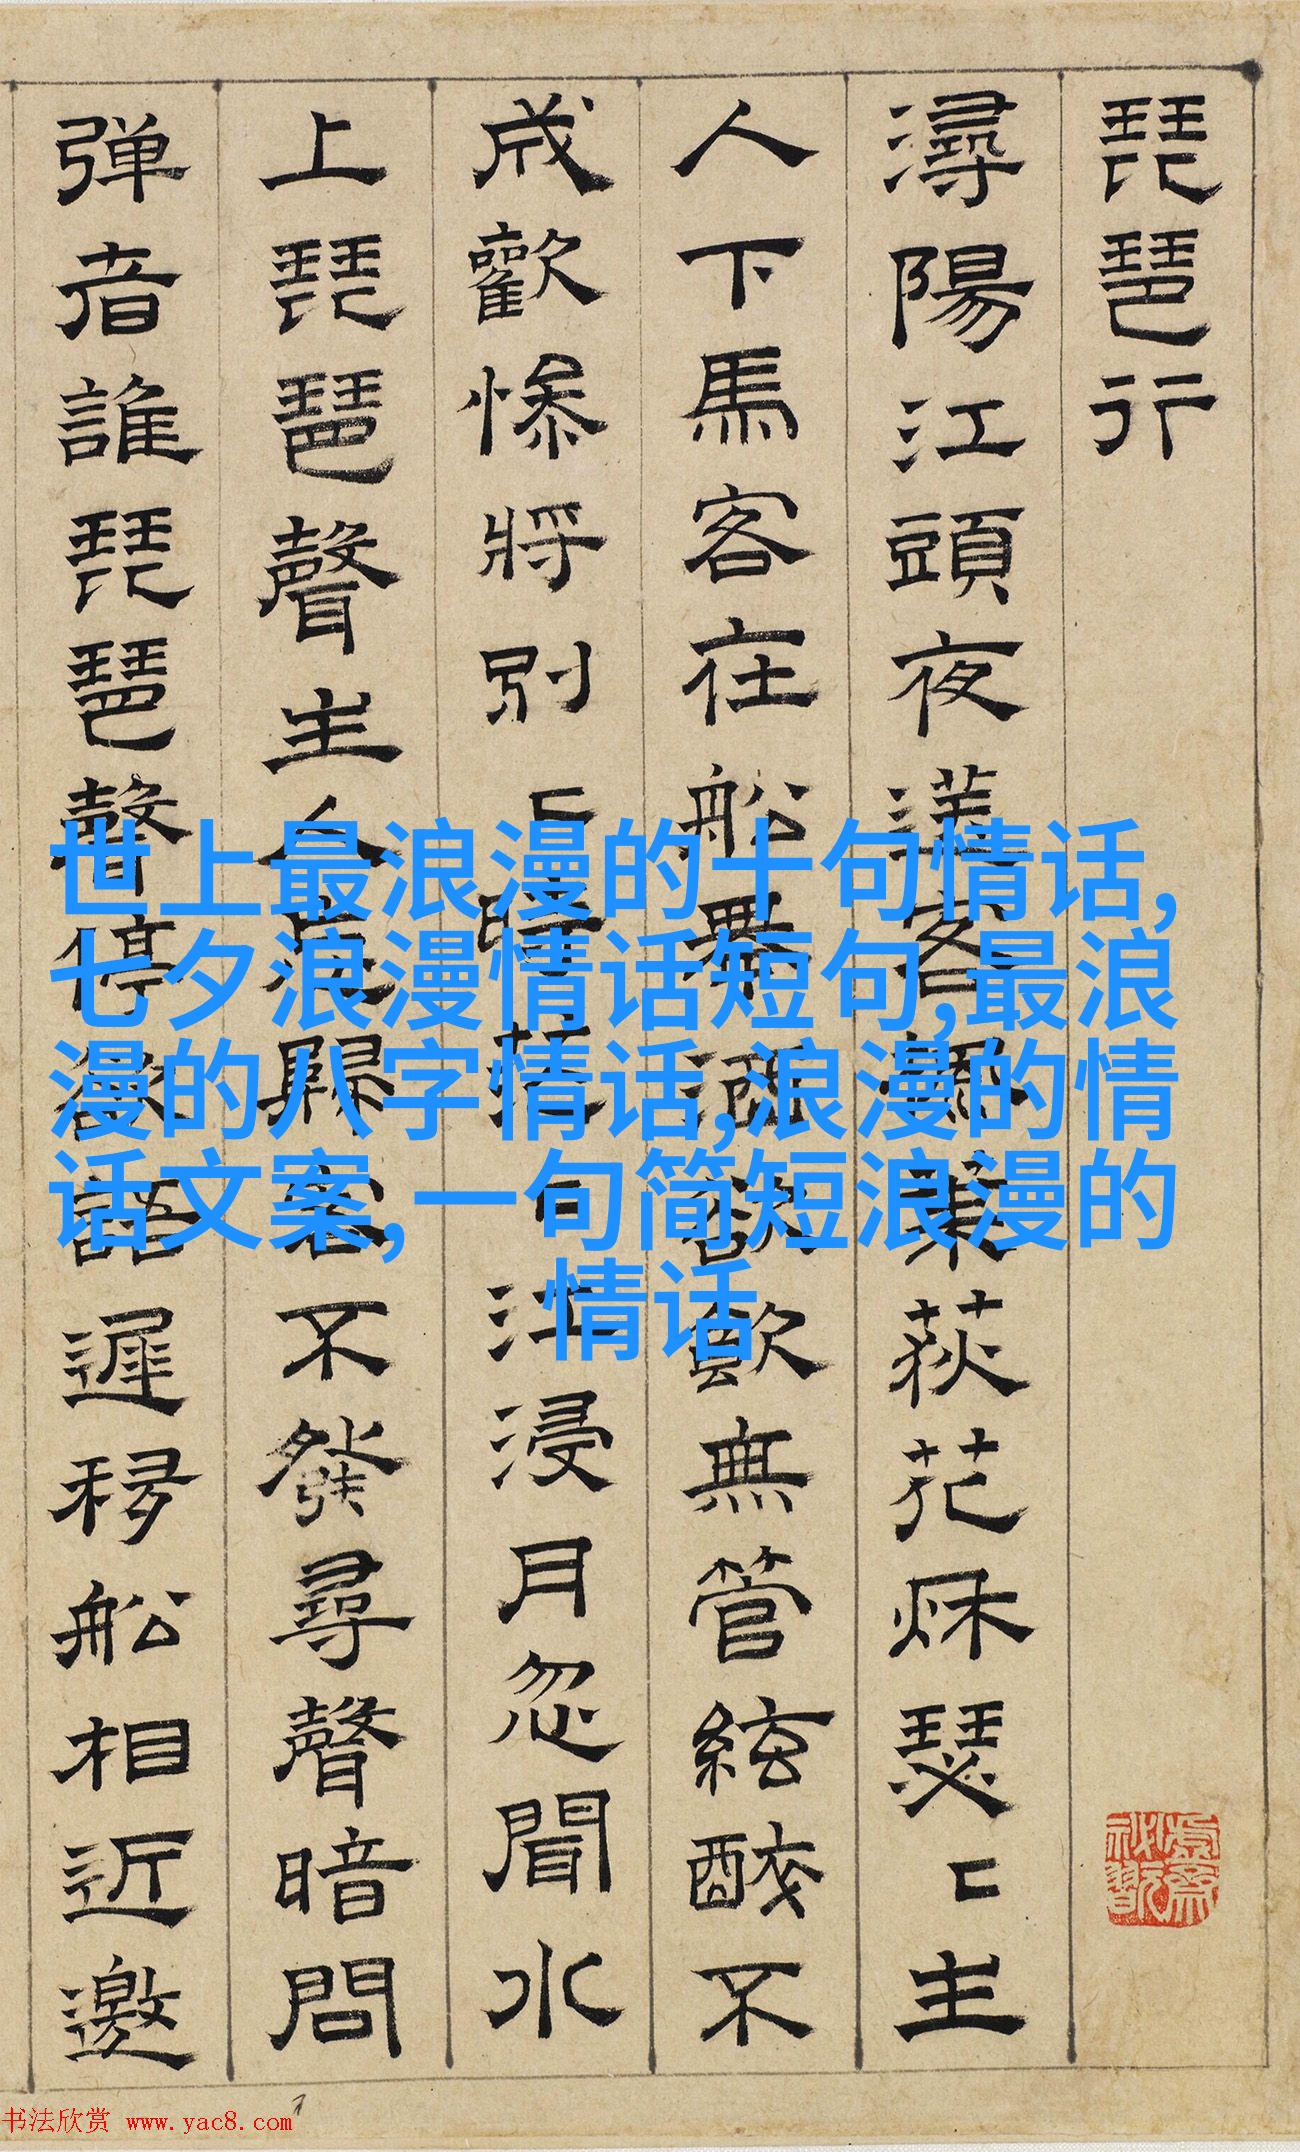 琵琶行
潯陽江頭夜送客楓葉荻花秌瑟〻主
人下馬客在船舉酒欲飲無管絃醉不
成歡慘將別〻時茫〻江浸月忽聞水
上琵琶聲主人忘歸客不發尋聲暗問
弹者誰琵琶聲停欲語遲移船相近邀
世上最浪漫的十句情话,
七夕浪漫情话短句,最浪
漫的八字情话,浪漫的情
话文案,一句简短浪漫的
情话
书法欣赏 www.yac8.com